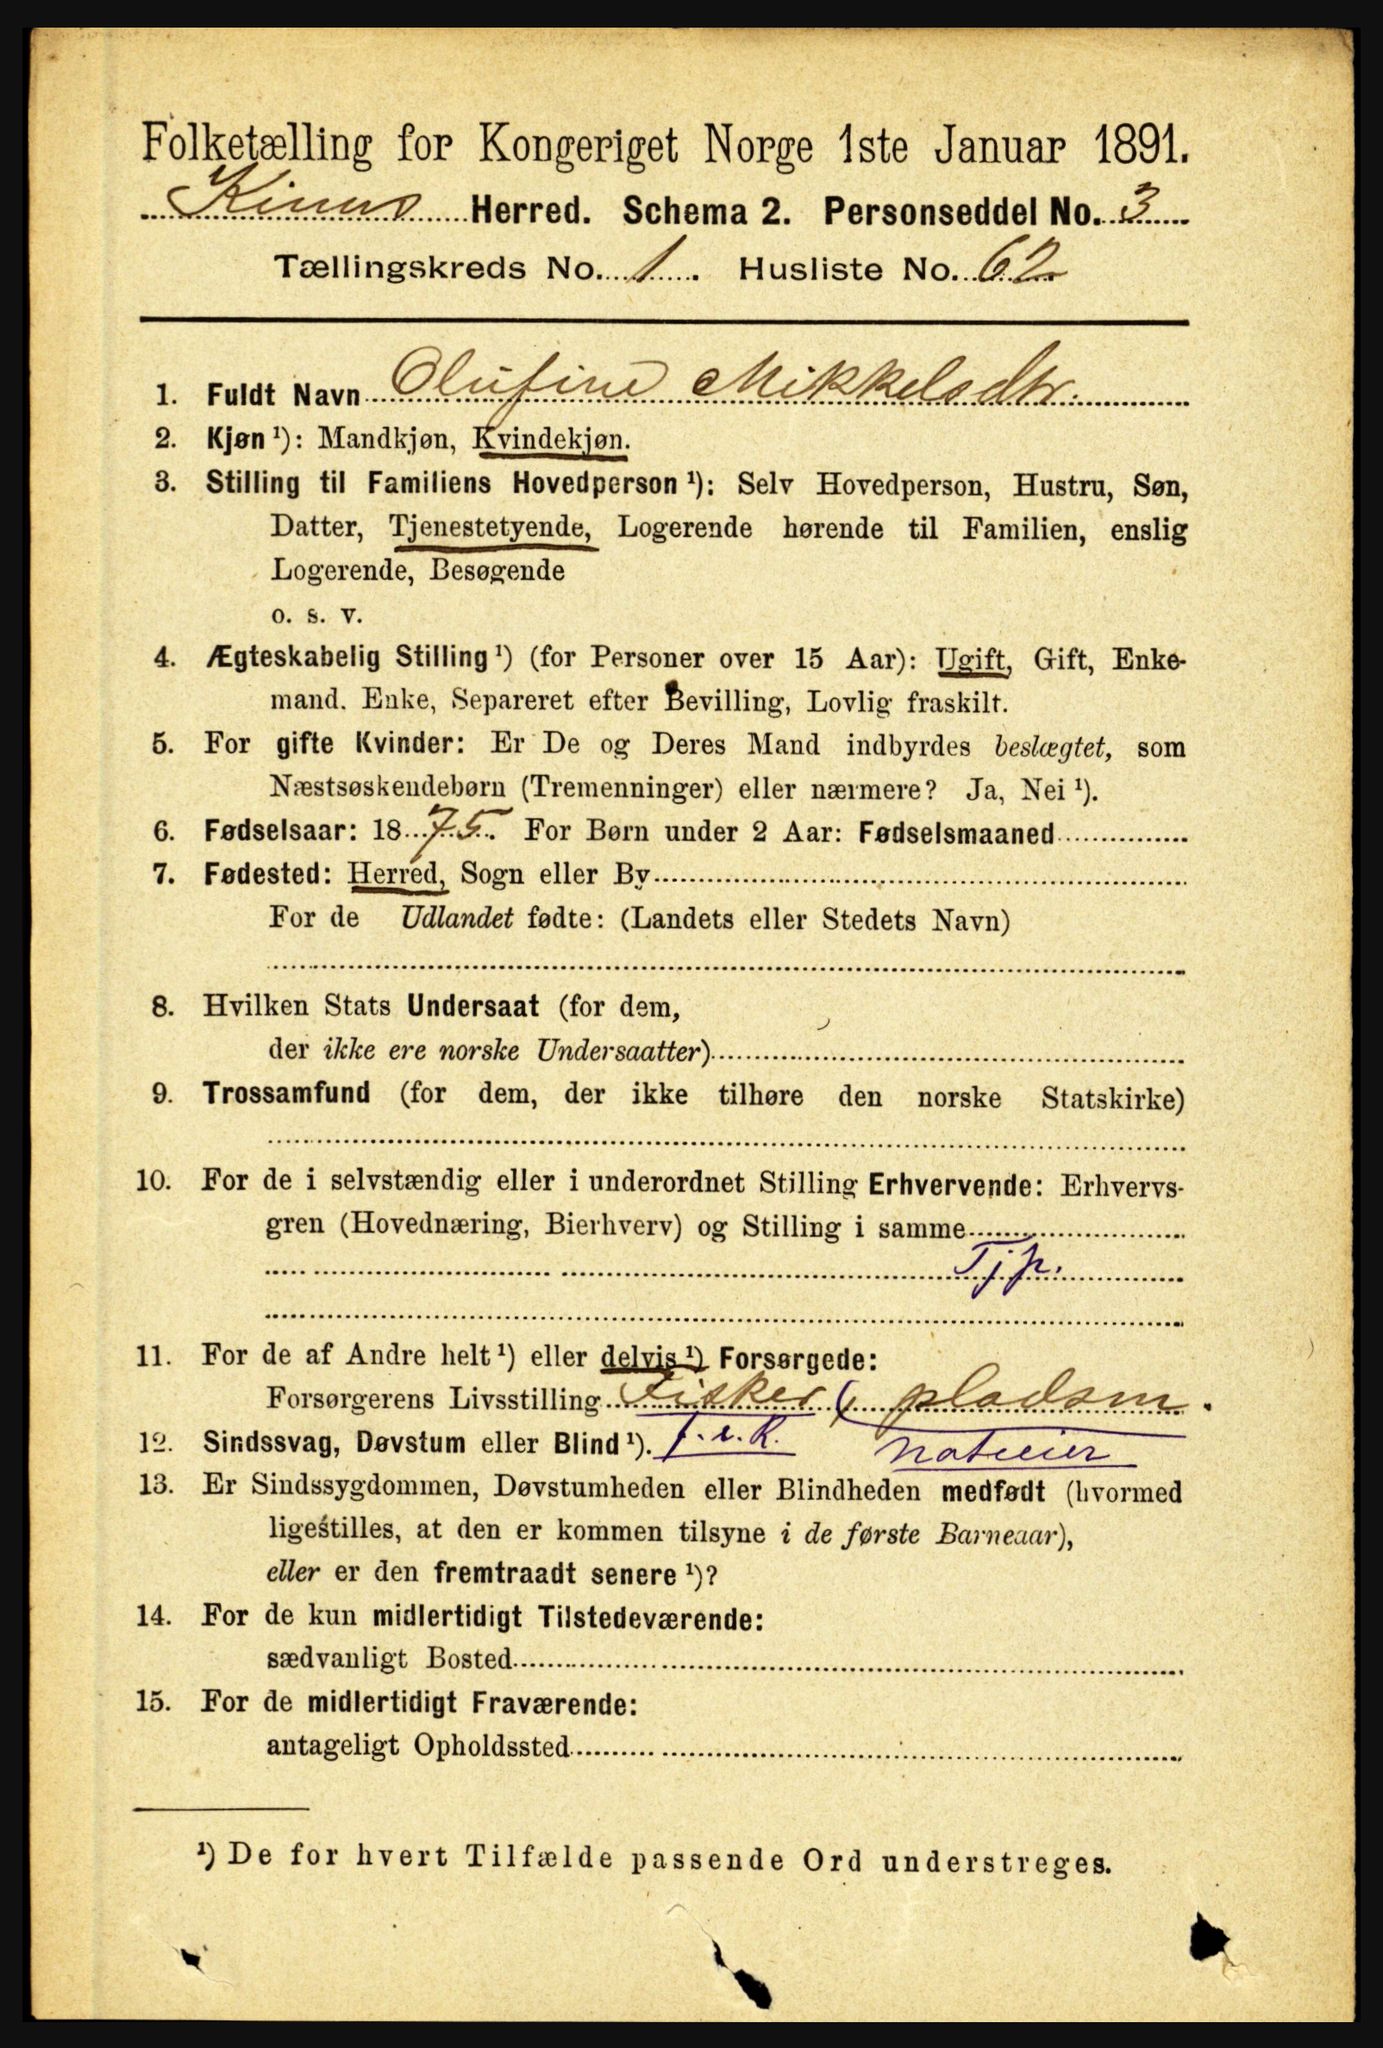 Folketælling for Kongeriget Norge 1ste Januar 1891.
Kinns Herred. Schema 2. Personseddel No. 3
Tællingskreds No. 1. Husliste No. 62
1. Fuldt Navn Olufine Mikkelsdtr.
2. Kjøn ¹): Mandkjøn, Kvindekjøn.
3. Stilling til Familiens Hovedperson ¹): Selv Hovedperson, Hustru, Søn,
Datter, Tjenestetyende, Logerende hørende til Familien, enslig
Logerende, Besøgende
o. s. v.
4. Ægteskabelig Stilling ¹) (for Personer over 15 Aar): Ugift, Gift, Enke-
mand, Enke, Separeret efter Bevilling, Lovlig fraskilt.
5. For gifte Kvinder: Er De og Deres Mand indbyrdes beslægtet, som
Næstsøskendebørn (Tremenninger) eller nærmere? Ja, Nei ¹).
6. Fødselsaar: 1875. For Børn under 2 Aar: Fødselsmaaned
7. Fødested: Herred, Sogn eller By
For de Udlandet fødte: (Landets eller Stedets Navn)
8. Hvilken Stats Undersaat (for dem,
der ikke ere norske Undersaatter)
9. Trossamfund (for dem, der ikke tilhøre den norske Statskirke)
10. For de i selvstændig eller i underordnet Stilling Erhvervende: Erhvervs-
gren (Hovednæring, Bierhverv) og Stilling i samme
Tjp.
11. For de af Andre helt ¹) eller delvis ¹) Forsørgede:
Forsørgerens Livsstilling Fisker, pladsm.
12. Sindssvag, Døvstum eller Blind ¹).
13. Er Sindssygdommen, Døvstumheden eller Blindheden medfødt (hvormed
ligestilles, at den er kommen tilsyne i de første Barneaar),
eller er den fremtraadt senere ¹)?
14. For de kun midlertidigt Tilstedeværende:
sædvanligt Bosted
15. For de midlertidigt Fraværende:
antageligt Opholdssted
¹) De for hvert Tilfælde passende Ord understreges.